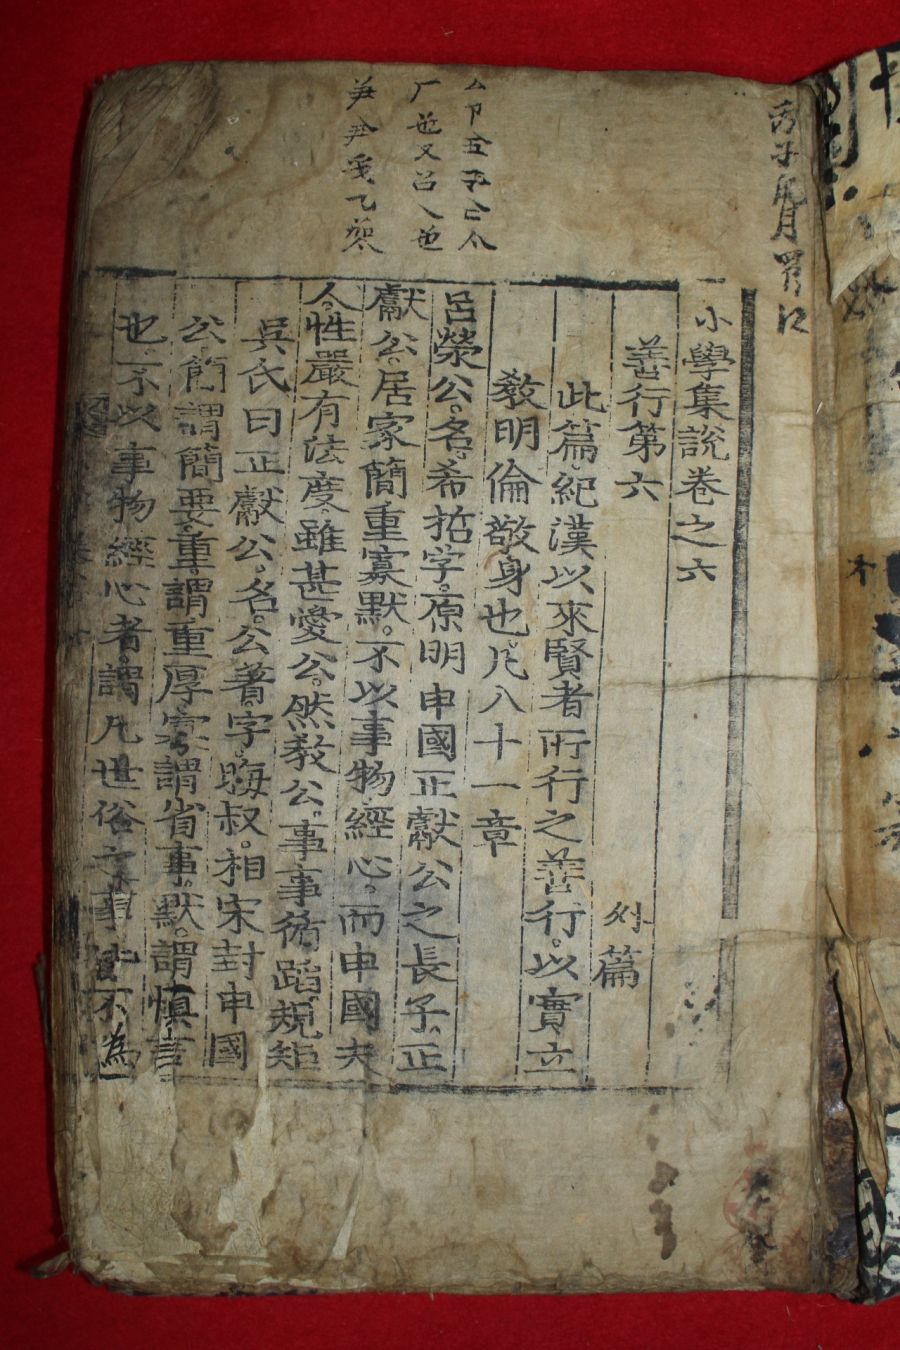 小學集說卷之六
善行第六
外篇
此篇紀漢以來賢者所行之善行以實立
敎明倫敬身也凡八十一章
呂滎公名希哲字原明申國正獻公之長子正
獻公居家簡重寡默不以事物經心而申國夫
人性嚴有法度雖甚愛公然敎公事事循蹈規矩
吳氏曰正獻公名公著字晦叔相宋封申國
公簡謂簡要重謂重厚寡謂省事默謂愼言
也不以事物經心者謂凡世俗之事皆不爲